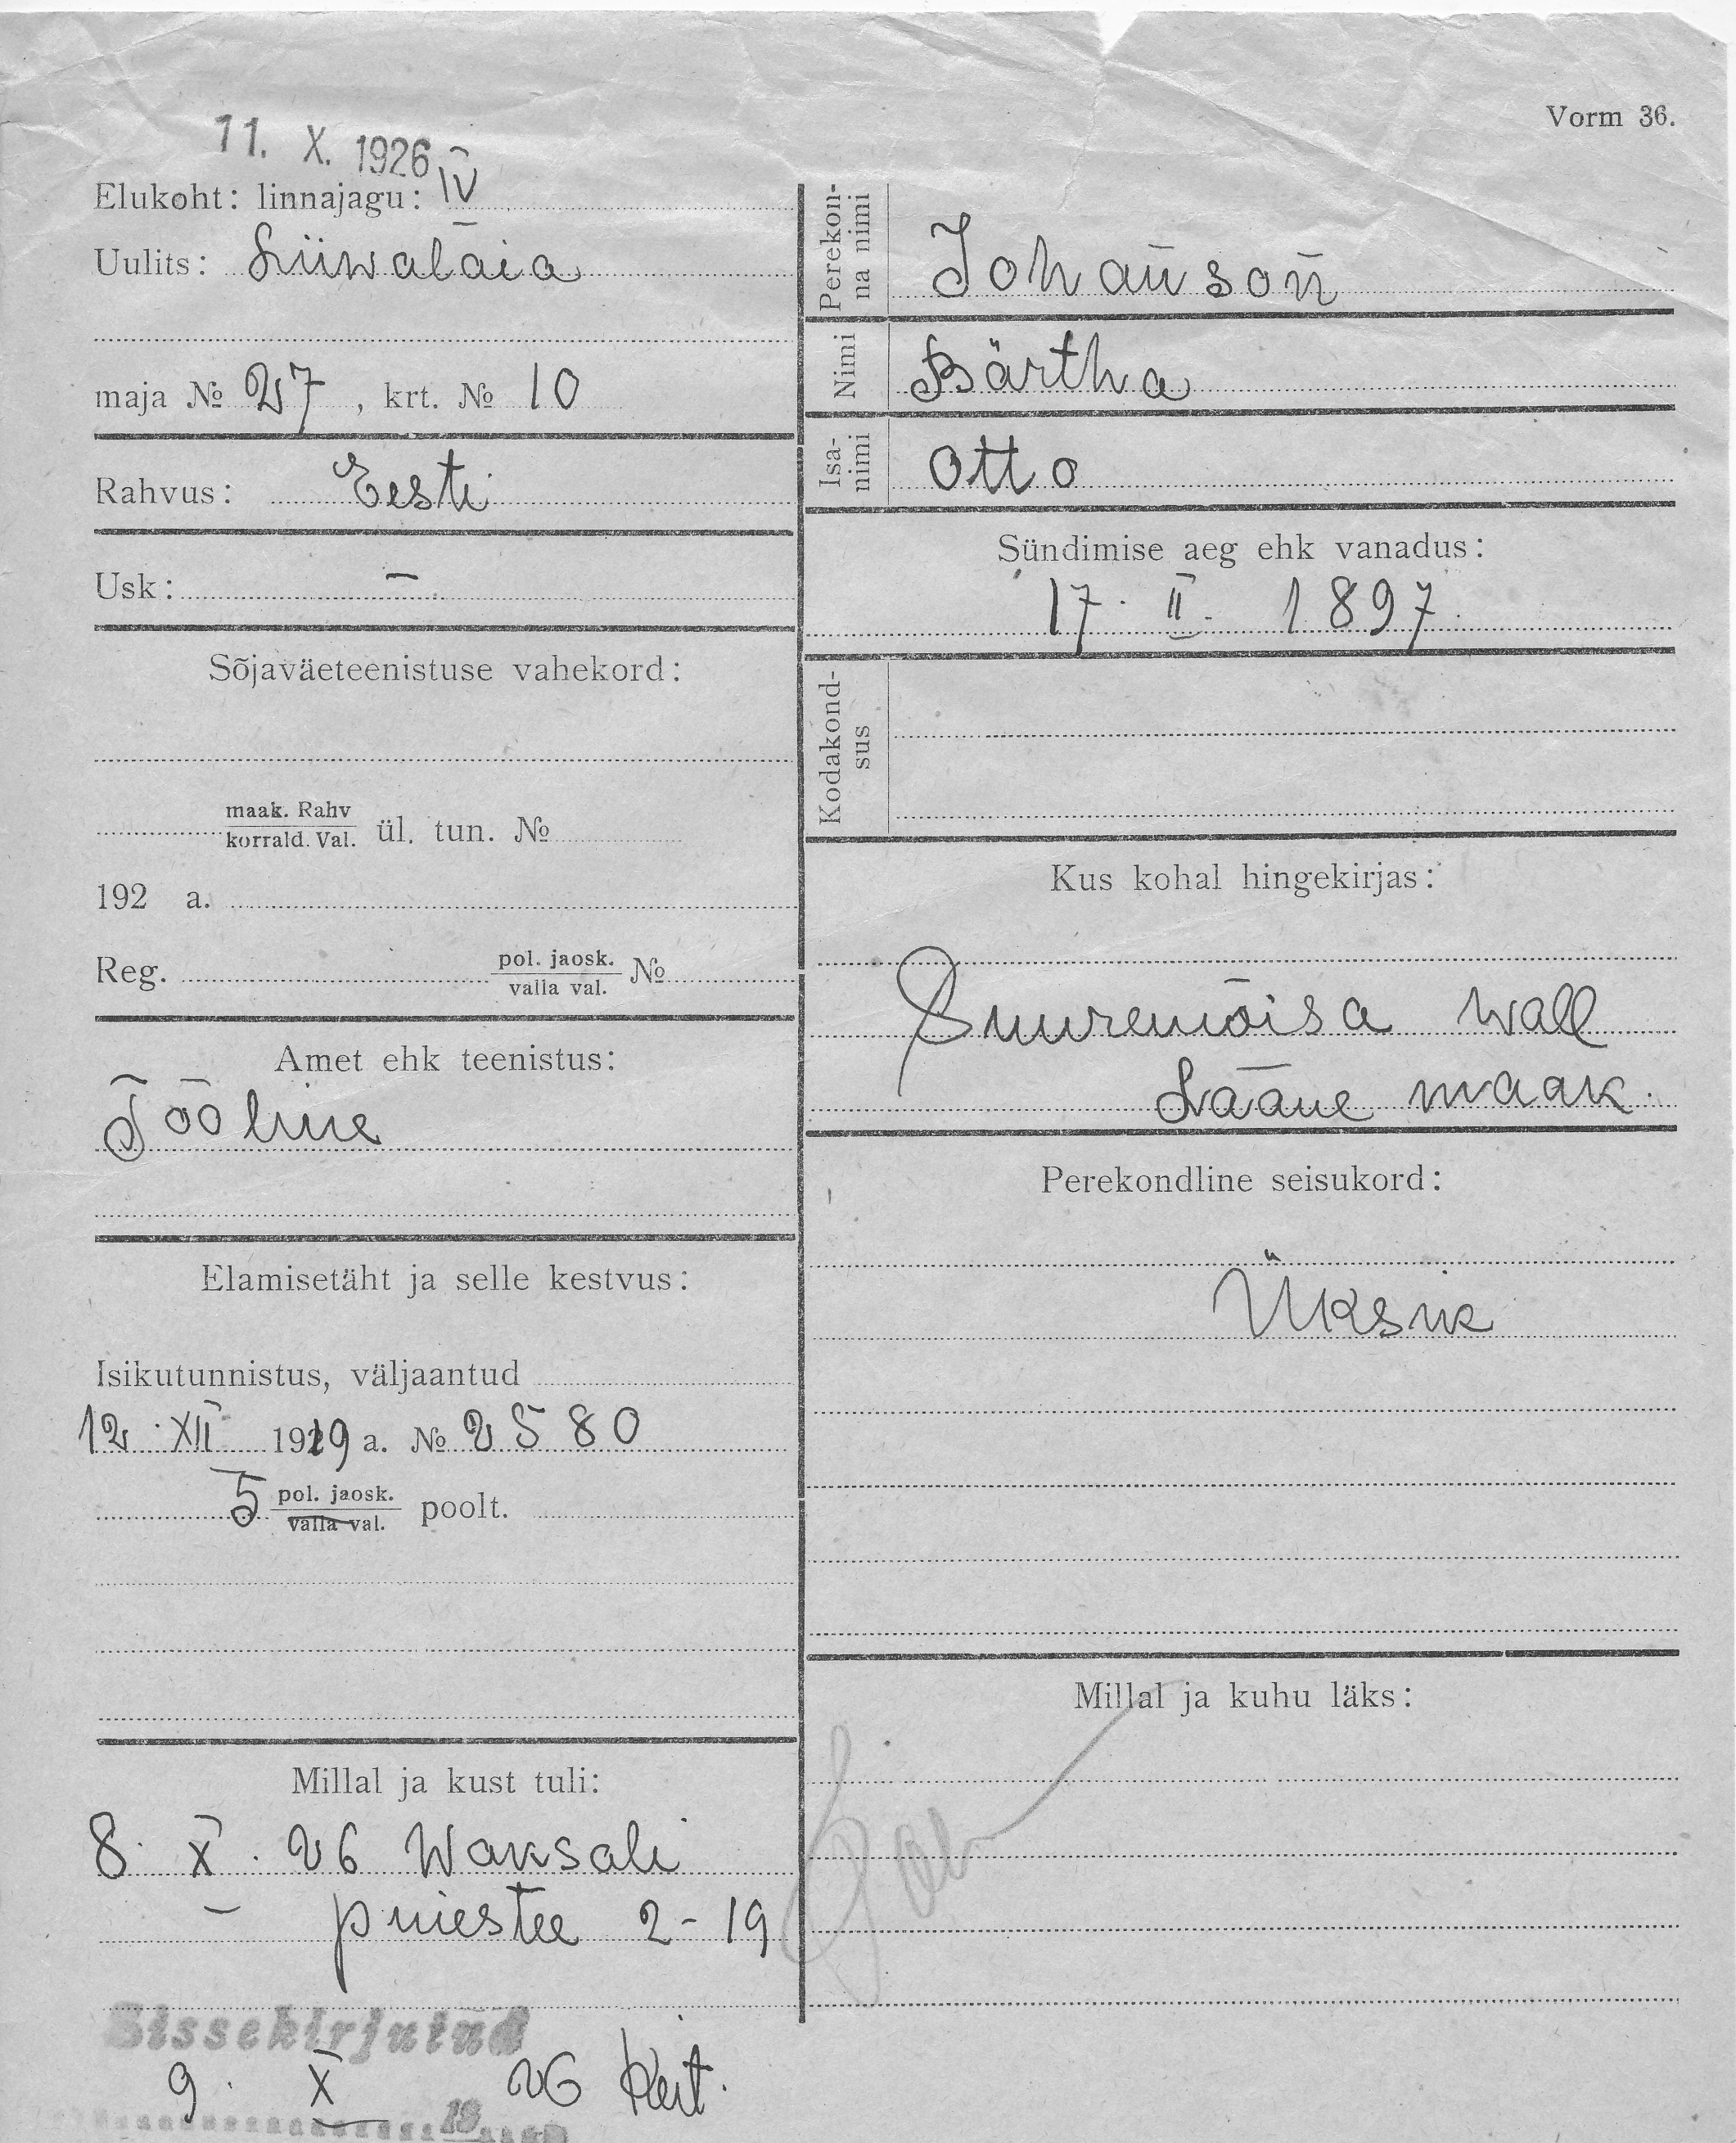 Vorm 36.
11. X. 1926
Elukoht: linnajagu: IV
Uulits: Liiwalaia
maja № 27, krt. № 10
Rahvus: Eesti
Usk: —
Sõjaväeteenistuse vahekord:
maak. Rahv
korrald. Val. ül. tun. №
192 a.
Reg. pol. jaosk. №
valla val.
Amet ehk teenistus:
Tööline
Elamisetäht ja selle kestvus:
Isikutunnistus, väljaantud
12. XII 1919 a. № 2580
5 pol. jaosk. poolt.
valla val.
Millal ja kust tuli:
8. X. 26 Waksali
— puiestee 2-19
Sissekirjutud
9. X 26
19
Perekon-
na nimi
Johanson
Nimi Bärtha
Isa-
nimi
Otto
Sündimise aeg ehk vanadus:
17. II. 1897
Kodakond-
sus
Kus kohal hingekirjas:
Suuremõisa wall
Lääne maak.
Perekondline seisukord:
Üksik
Millal ja kuhu läks: